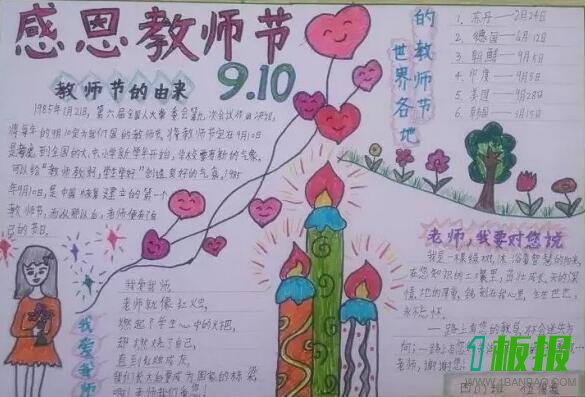 感恩教师节
9.10
教师节的由来
1985年1月21日,第六届全国人大常委会第九次会议作出决议,
将每年的9月10日定为我们国的教师节,将教师节定在9月10日
是考虑到全国的大、中、小学新学年开始,学校要有新的气象。
可以给"教师教好,学生学好"创造良好的气象。1985
年9月10日,是中国恢复建立的第一个
教师节,
自己的节日。
世界各地
的教师节
1. 东丹——2月24日
2. 德国——6月12日
3. 朝鲜——9月5日
4. 印度——9月5日
5. 美国——9月28日
6. 韩国——5月15日
老师,我要对您说
我是一棵绿树,沐浴着智慧的阳光,
在您知识的土壤里,茁壮成长。天的深
情,地的厚意,铭刻在我心里,生生世世,
永不忘怀。
一路上有您的教导,才会迷失方
老师,谢谢您!
我爱我师
我爱我师,
老师就像红烛,
燃起了学生心中的火把,
燃烧了自己,
直到红烛成灰,
我们长大当要成为国家的栋梁,
啊!老师我们爱您!
1板报
WWW.1BANBAO.COM
四(1)班